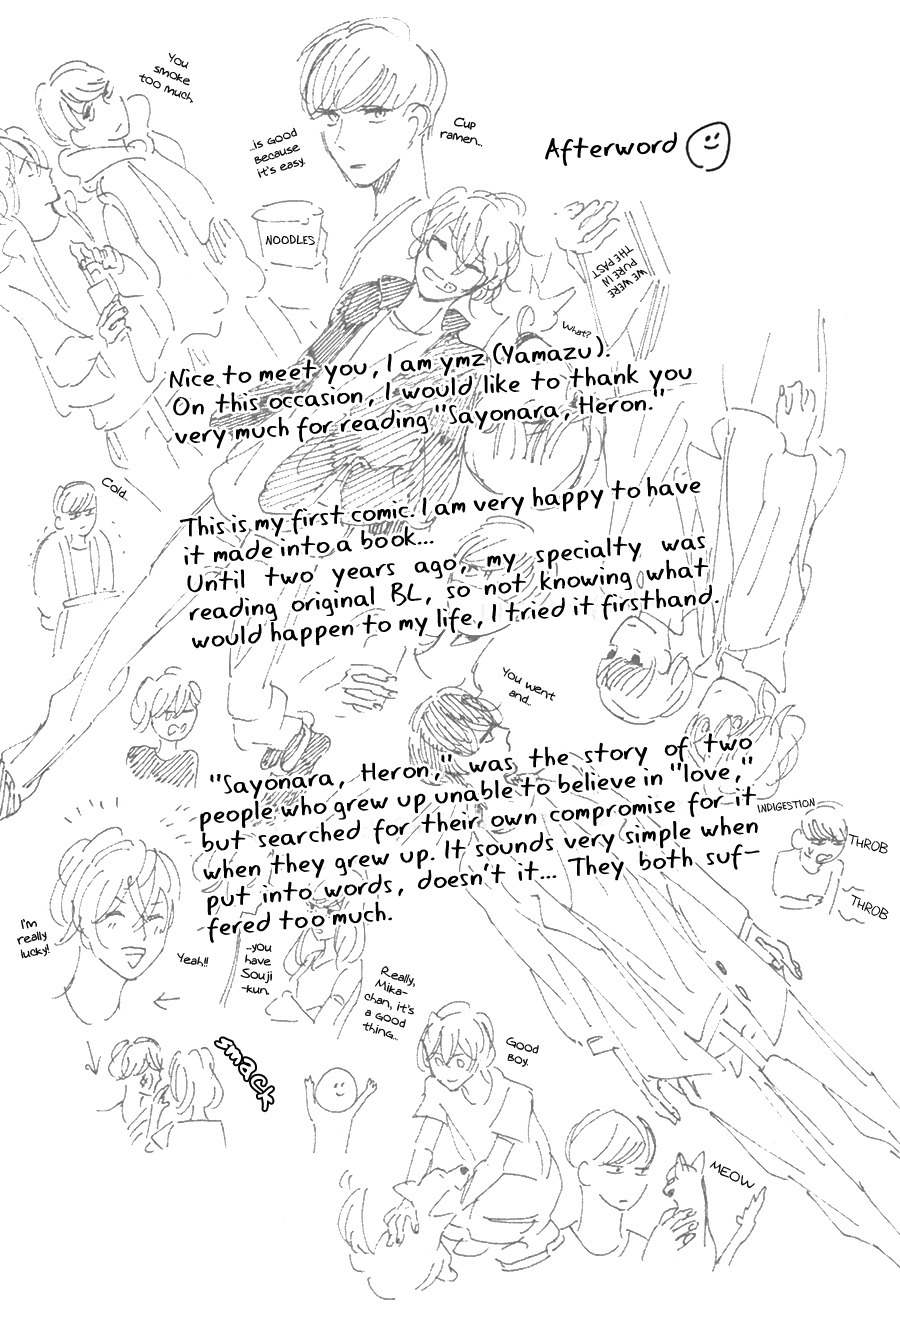 Afterword
You
smoke
too much.
Cup
ramen...
...is good
because
it's easy.
NOODLES
WE WERE
PURE IN
THE PAST
What?
Nice to meet you, I am ymz (Yamazu).
On this occasion, I would like to thank you
very much for reading "Sayonara, Heron."
Cold...
This is my first comic. I am very happy to have
it made into a book...
Until two years ago, my specialty was
reading original BL, so not knowing what
would happen to my life, I tried it firsthand.
You went
and...
"Sayonara, Heron," was the story of two
people who grew up unable to believe in "love,"
but searched for their own compromise for it
when they grew up. It sounds very simple when
put into words, doesn't it... They both suf-
fered too much.
INDIGESTION
THROB
THROB
I'm
really
lucky!
Yeah!!
...you
have
Souji
-kun.
Really,
Mika-
chan, it's
a good
thing...
smack
Good
boy.
MEOW